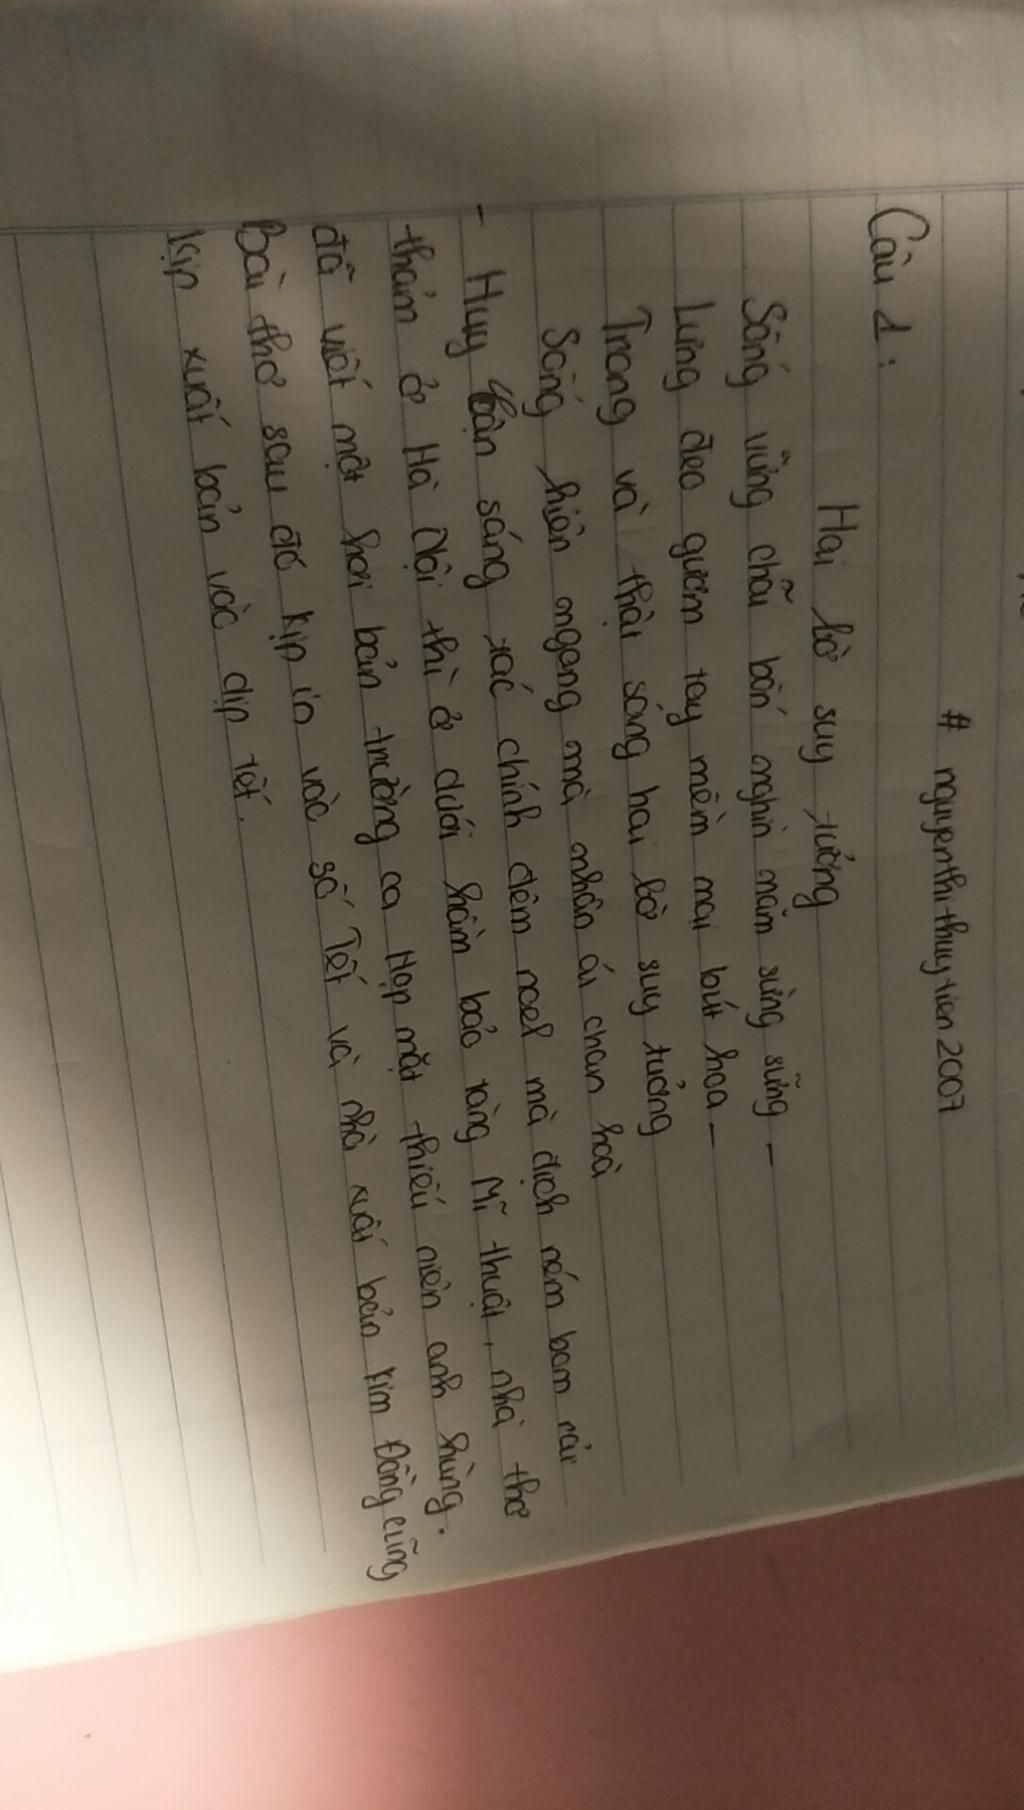 # nguyenthithuytien2007
Câu 1:
Hai bờ suy tưởng
Sống vững chãi bốn nghìn năm sừng sững -
Lưng đeo gươm tay mềm mại bút hoa -
Trong và thật sáng hai bờ suy tưởng
Sống hiên ngang mà nhân ái chan hoà
- Huy Cận sáng tác chính đêm noel mà địch ném bom rải
thảm ở Hà Nội thì ở dưới hầm báo tàng Mĩ thuật, nhà thơ
đã viết một hơi bản trường ca Họp mặt thiếu niên anh hùng.
Bài thơ sau đó kịp in vào số Tết và nhà xuất bản Kim Đồng cũng
kịp xuất bản vào dịp Tết.